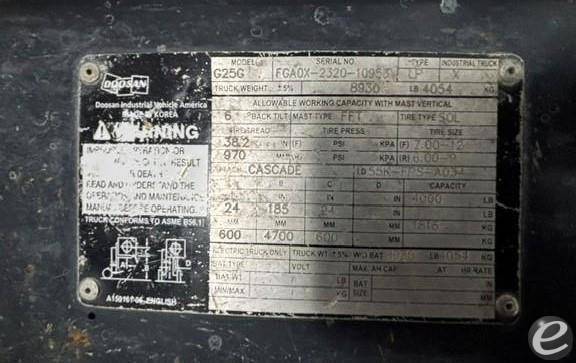 MODEL SERIAL NO. TYPE INDUSTRIAL TRUCK
G25G FGA0X-2320-10953 LP X
DOOSAN
TRUCK WEIGHT ±5% 8930 LB 4054 KG
Doosan Industrial Vehicle America
MADE IN KOREA
ALLOWABLE WORKING CAPACITY WITH MAST VERTICAL
6 BACK TILT MAST TYPE FFT TYPE SOL
WARNING
TREAD TIRE PRESS TIRE SIZE
38.2 IN (F) PSI KPA (F) 7.00-12
970 MM (R) PSI KPA (R) 6.00-9
IMPROPER OPERATION OR
RESULT
IN DEATH
READ AND UNDERSTAND THE
OPERATION AND MAINTENANCE
MANUAL BEFORE OPERATING.
TRUCK CONFORMS TO ASME B56.1
CASCADE ID 55K-FPS-A034
B C D CAPACITY
IN IN IN LB
24 185 24 4000
MM MM MM KG
600 4700 600 1816
ELECTRIC TRUCK ONLY TRUCK WT ±5% W/O BAT LB 4054 KG
BAT TYPE VOLT MAX. AH CAP. AT HR RATE
BAT WT LB BAT IN
MIN/MAX KG SIZE MM
ENGLISH
NHẬT